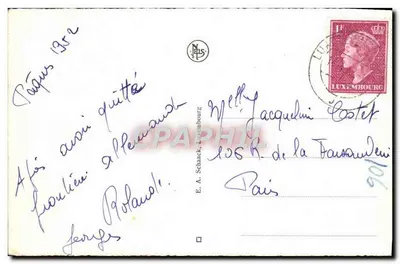 Pâques 1952
Après avoir quitté
frontière allemande
Rolande
Georges
E. A. Schaack, Luxembourg
1F
LUXEMBOURG
Melle Jacqueline Costet
106 R. de la
Paris
106